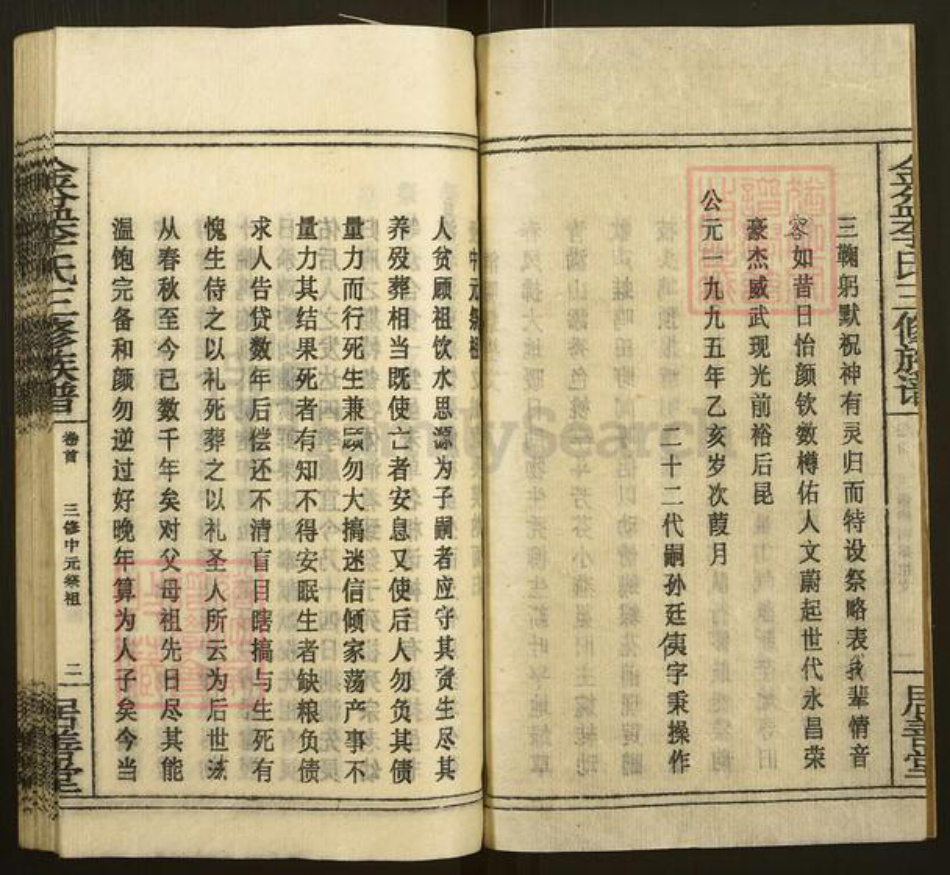 三鞠躬默祝神有灵归而特设祭略表我辈情音
容如昔日怡颜钦数樽佑人文蔚起世代永昌荣
豪杰威武现光前裕后昆
公元一九九五年乙亥岁次葭月
二十二代嗣孙廷𠈱字秉操作
居善堂
中元祭祖
人贫顾祖饮水思源为子嗣者应守其责生尽其
养殁葬相当既使亡者安息又使后人勿负其债
量力而行死生兼顾勿大搞迷信倾家荡产事不
量力其结果死者有知不得安眠生者缺粮负债
求人告贷数年后偿还不清盲目瞎搞与生死有
愧生侍之以礼死葬之以礼圣人所云为后世法
从春秋至今已数千年矣对父母祖先日尽其能
温饱完备和颜勿逆过好晚年算为人子矣今当
李氏三修族谱
卷首
三修中元祭祖
二
居善堂
FamilySearch